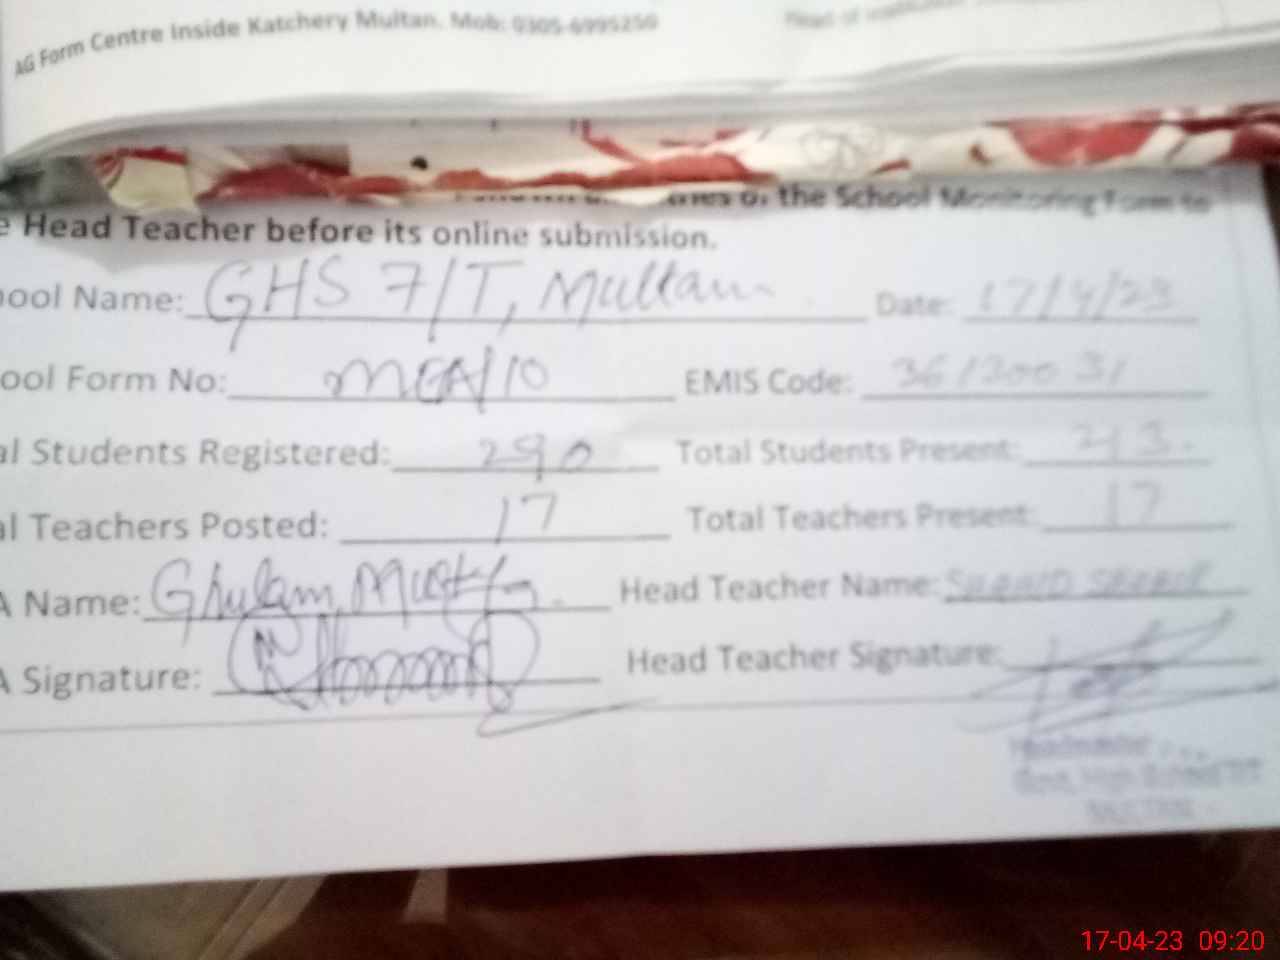 AG Form Centre Inside Katchery Multan. Mob: 0305-6995250
Head of
the School Monitoring Form to
e Head Teacher before its online submission.
ool Name: GHS 7/T, Multan Date: 17/4/23
ool Form No: MEA/10 EMIS Code: 36120031
al Students Registered: 290 Total Students Present: 213.
al Teachers Posted: 17 Total Teachers Present: 17
A Name: Ghulam Head Teacher Name:
A Signature: Head Teacher Signature:
Headmaster
Govt. High School 7/T
MULTAN
17-04-23 09:20